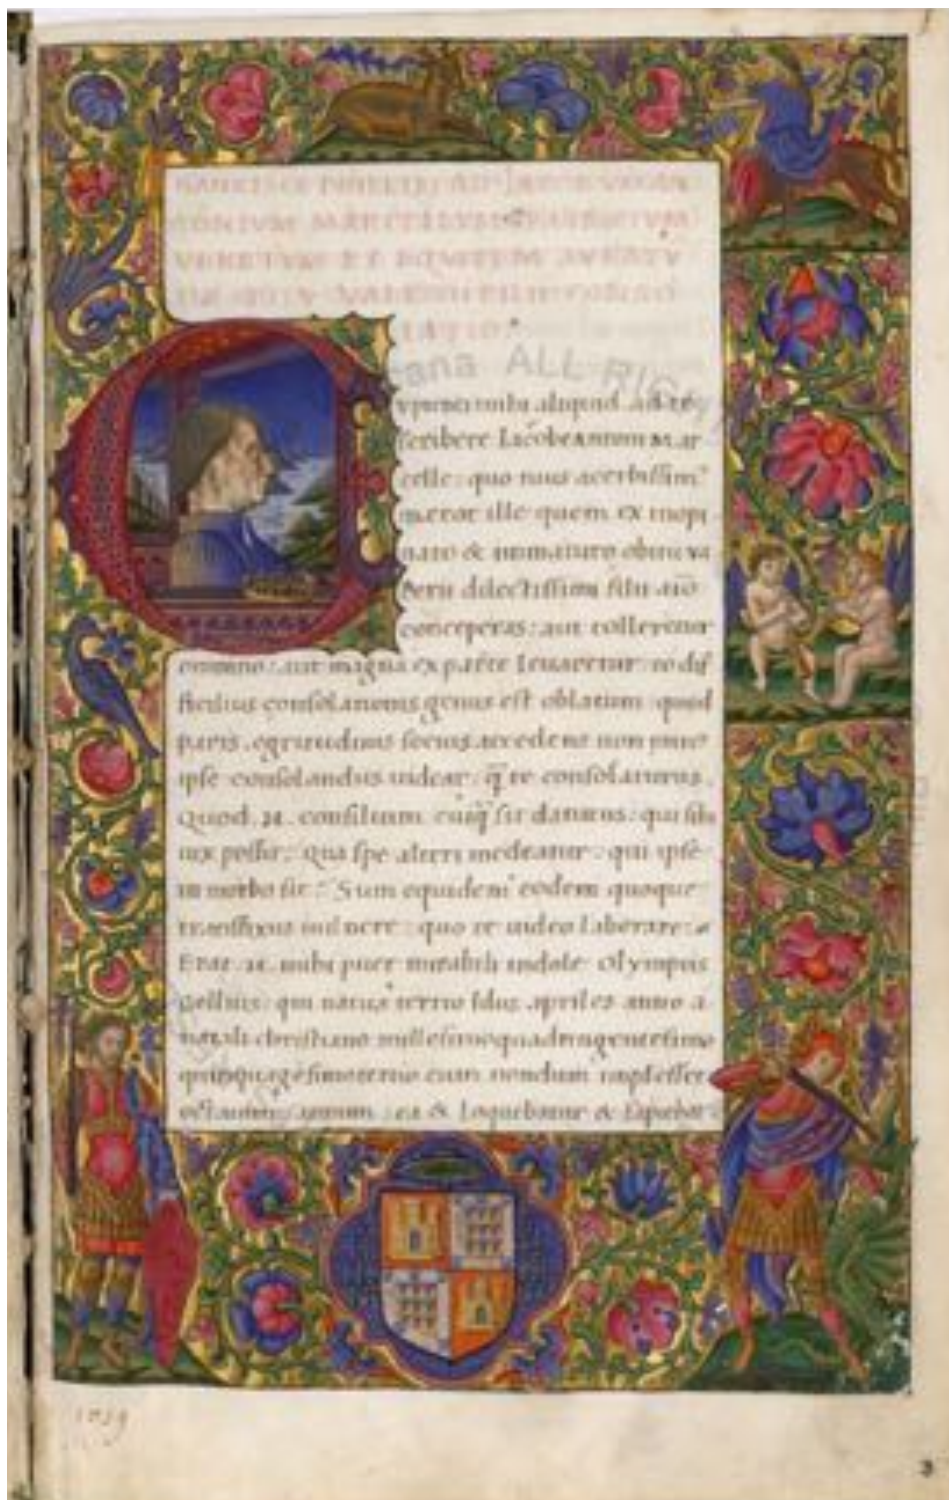 TONIVM MARCELLVM PATRICIVM
VENETVM ET EQVITEM AVRATV
VALERII FILII CONSO
LATIO
ana ALL RIG
cupienti mihi aliquid ad te
scribere Iacobe antoni Mar
celle: quo tuus acerbissim
meror ille quem ex inopi
nato & immaturo obitu va
lerii dilectissimi filii tuo
conceperas: aut tolleretur
omnino: aut magna ex parte leuaretur: eo dif
ficilius consolationis genus est oblatum: quod
paris egritudinis socius accedens non minus
ipse consolandus uidear: q̄ te consolaturus.
Quod .n. consilium cuiq̄ sit daturus: qui sibi
nix possit? Qua spe alteri medeatur: qui ipse
in morbo sit? Sum equidem eodem quoque
transfixus uulnere: quo te uideo laborare:
Erat .n. mihi puer mirabili indole Olympius
gellius: qui natus tertio idus apriles anno a
natali christiano millesimo quadringentesimo
quinquagesimo tertio cum nondum implesset
octauum annum: ea & loquebatur & sapiebat
1039
3